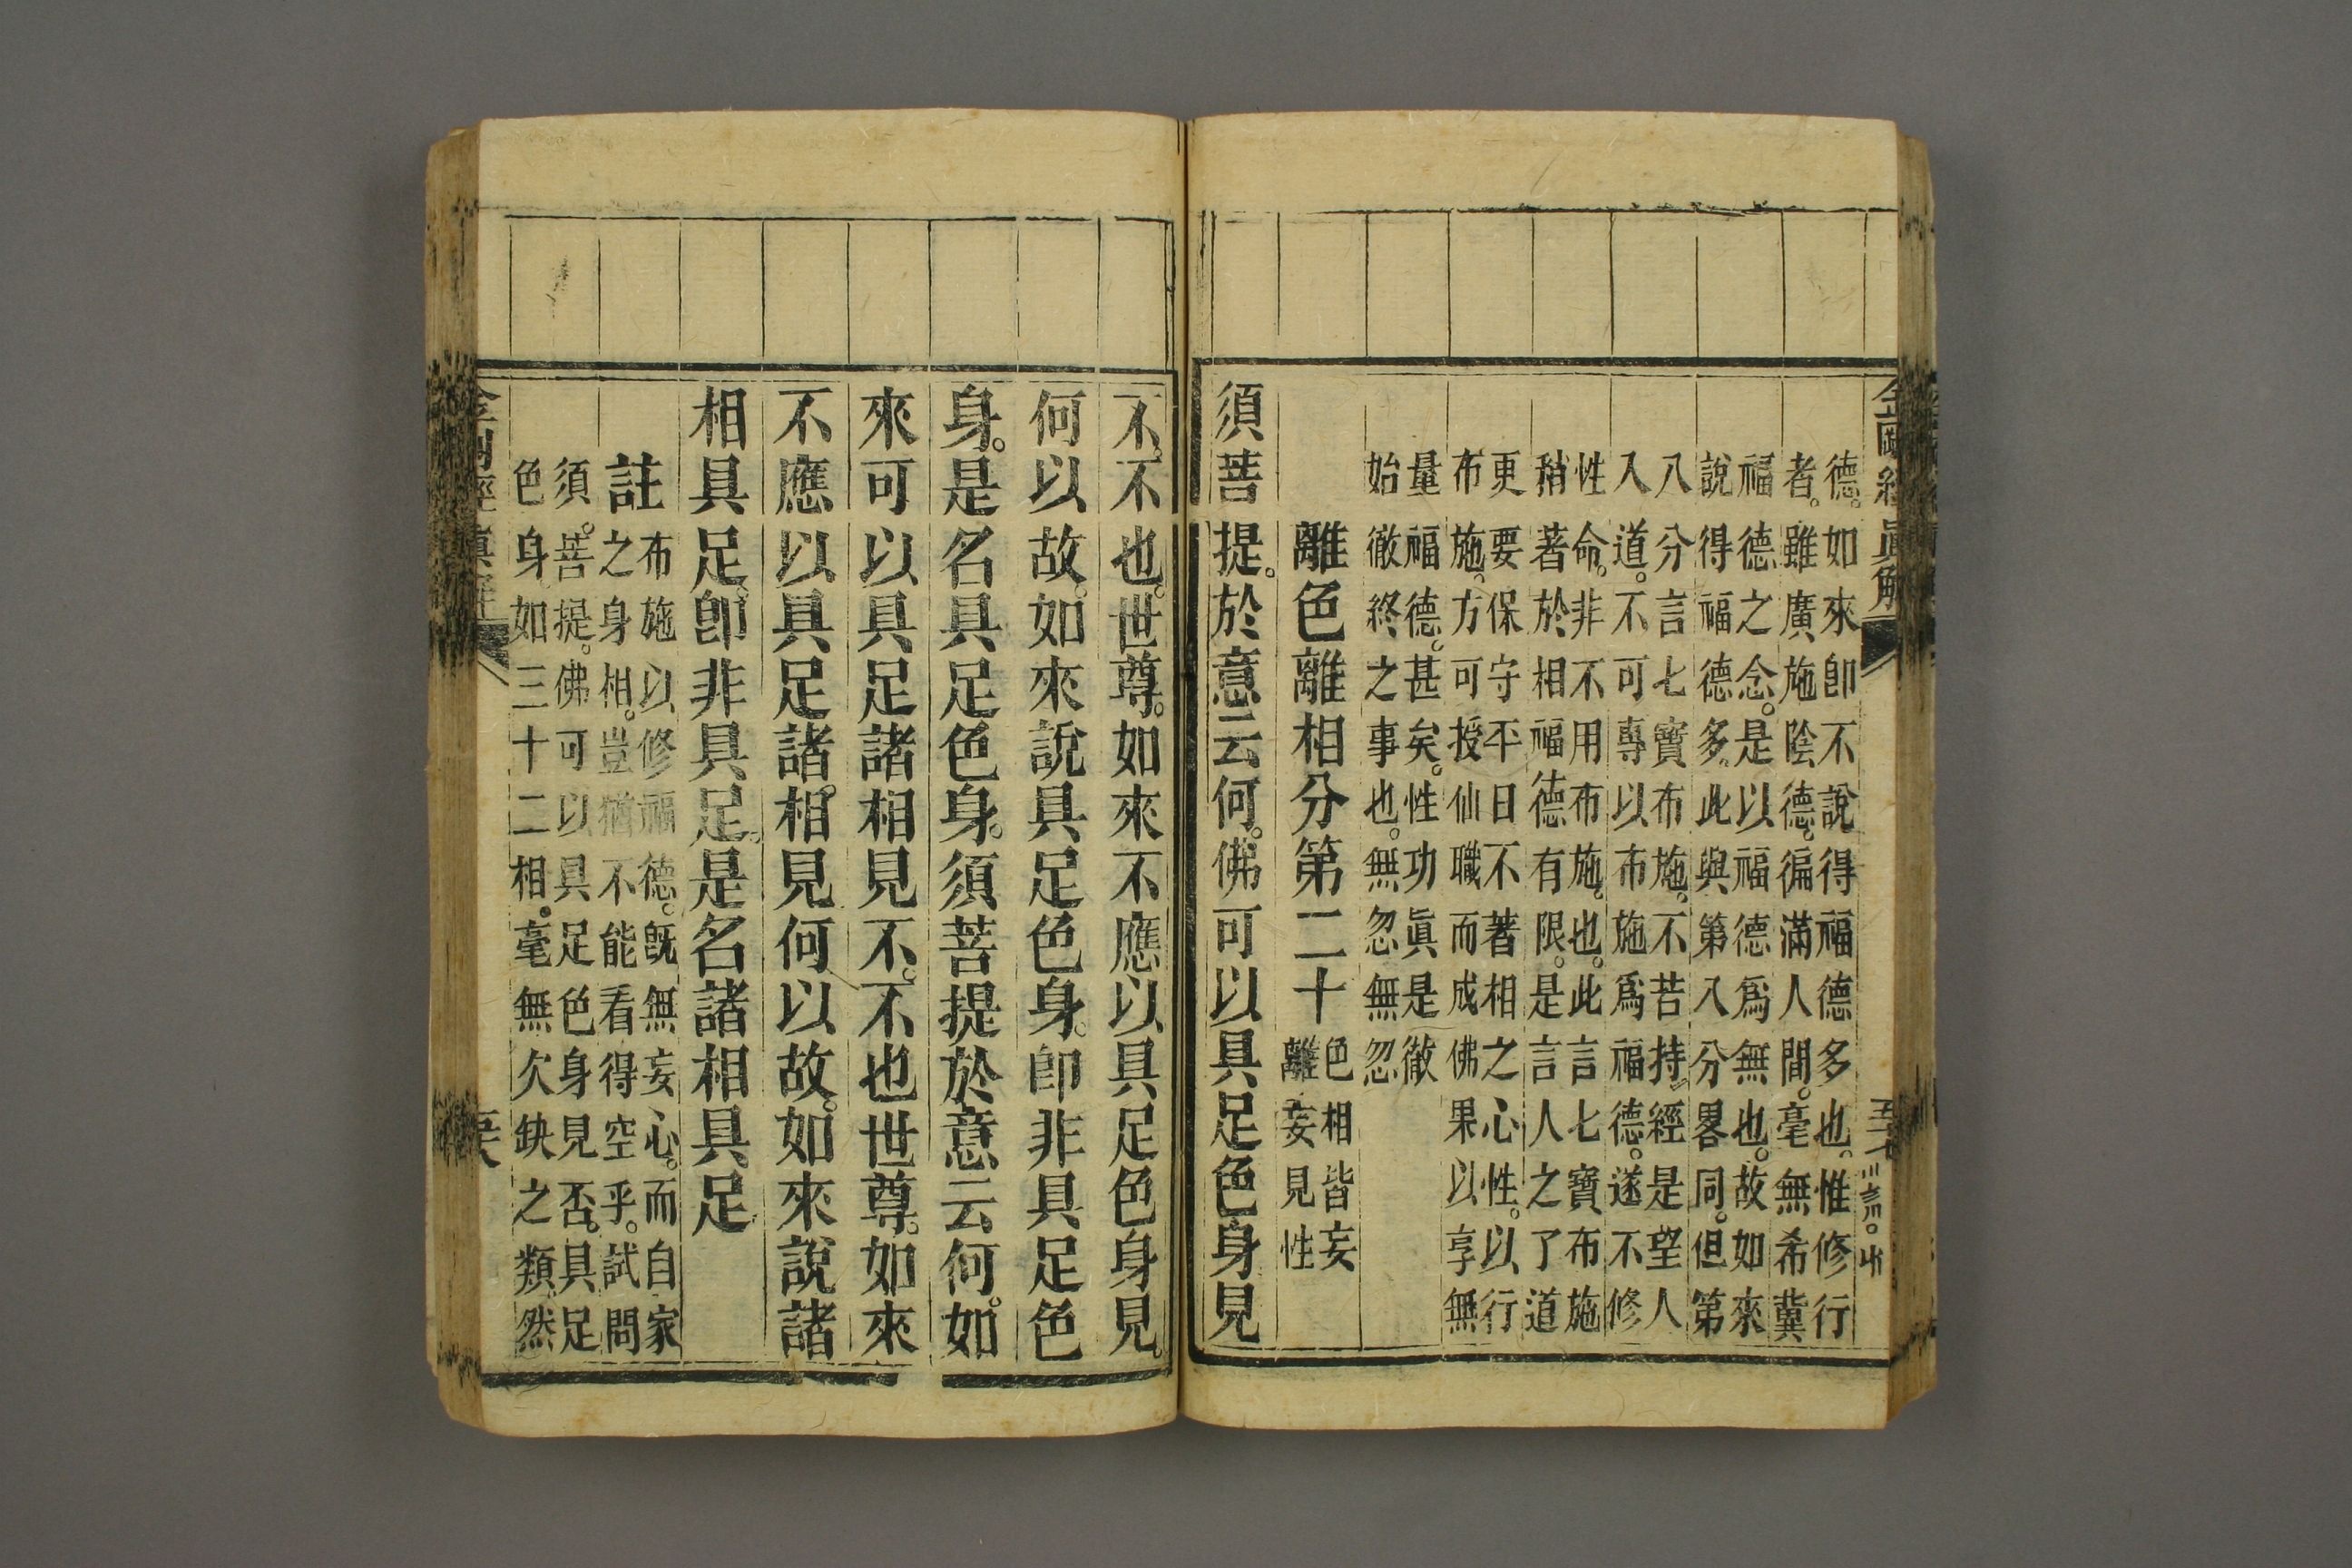 金剛經眞解
德。如來卽不說得福德多也。惟修行
者。雖廣施陰德。徧滿人間。毫無希冀
福德之念。是以福德爲無也。故如來
說得福德多。此與第入分畧同。但第
八分言七寶布施。不苦持經是望人
入道。不可專以布施爲福德。遂不修
性命。非不用布施。也。此言七寶布施
稍著於相福德有限。是言人之了道
更要保守平日不著相之心性。以行
布施。方可授仙職而成佛果以享無
量福德。甚矣。性功眞是徹
始徹終之事也。無忽無忽
離色離相分第二十
色相皆妄
離妄見性
須菩提。於意云何。佛可以具足色身見
不。不也。世尊。如來不應以具足色身見。
何以故。如來說具足色身。卽非具足色
身。是名具足色身。須菩提於意云何。如
來可以具足諸相見不。不也世尊。如來
不應以具足諸相見何以故。如來說諸
相具足。卽非具足。是名諸相具足
註
布施以修福德。旣無妄心。而自家
之身相。豈猶不能看得空乎。試問
須。菩提。佛可以具足色身見否。具足
色身如三十二相。毫無欠缺之類。然